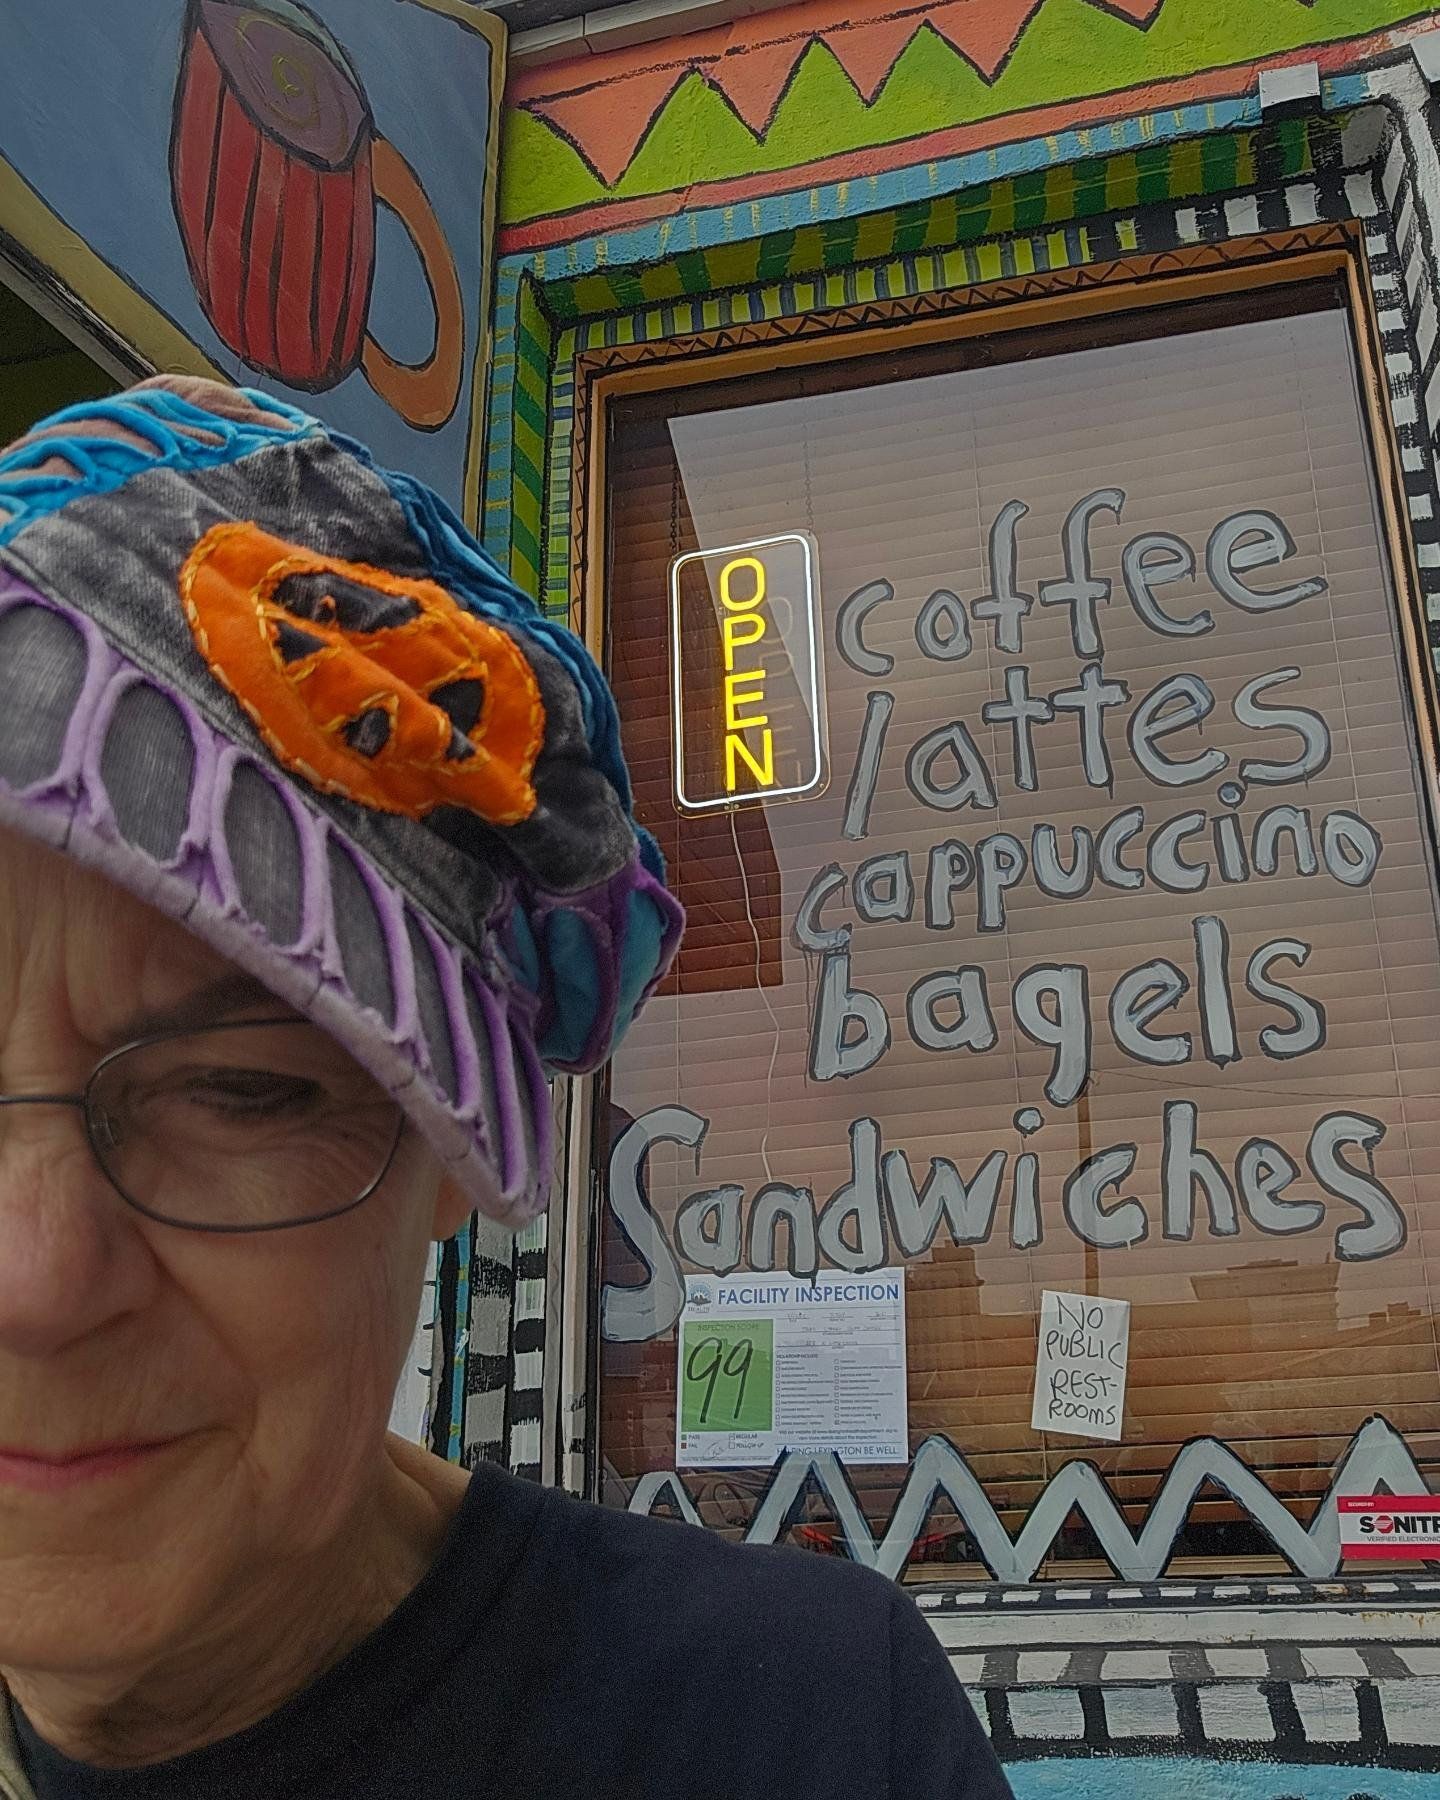 OPEN
coffee
lattes
cappuccino
bagels
Sandwiches
FACILITY INSPECTION
INSPECTION SCORE
99
PASS
FAIL
REGULAR
FOLLOW-UP
HELPING LEXINGTON BE WELL
NO
PUBLIC
REST-
ROOMS
SONITR
VERIFIED ELECTRONIC